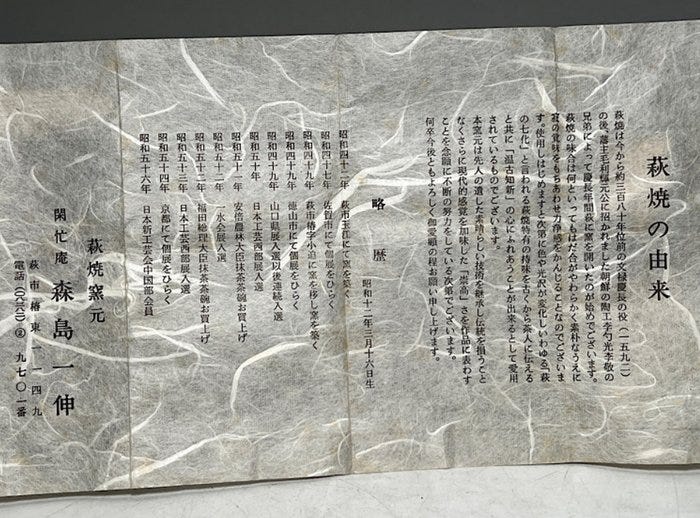 萩焼の由来
萩焼は今から約三百八十年位前の文禄慶長の役(一五九二)
の後、藩主毛利輝元公に招かれました朝鮮の陶工李勺光李敬の
兄弟によって慶長年間萩に窯を開いたのが始めでございます。
萩焼の味合は何といってもはだ合がやわらかく素朴なうえに
寂の覚味をもちあわせ力浄感をかんじることなのでございま
す。使用しはじめますと次第に色や光沢が変化しいわゆる「萩
の七化」と言われる萩焼特有の持味を古くから茶人に伝える
と共に「温古知新」の心にふれあうことが出来るとして愛用
されているものでございます。
本窯元は先人の遺した素晴らしい技術を継承し伝統を損うこと
なくさらに現代的感覚を加味した「崇高」さを作品に表わす
ことを念願に不断の努力をしている次第でございます。
何卒今後ともよろしく御愛顧の程お願い申し上げます。
略歴
昭和十二年三月十六日生
昭和四十二年 萩市玉江にて窯を築く
昭和四十七年 佐賀市にて個展をひらく
昭和四十九年 萩市椿字小迫に窯を移し窯を築く
昭和四十九年 徳山市にて個展をひらく
昭和五十年 山口県展入選以後連続入選
昭和五十年 日本工芸西部展入選
昭和五十一年 安倍農林大臣抹茶茶碗お買上げ
昭和五十一年 一水会展入選
昭和五十二年 福田総理大臣抹茶茶碗お買上げ
昭和五十三年 日本工芸西部展入選
昭和五十六年 京都にて個展をひらく
昭和五十六年 日本新工芸会中国部会員
萩焼窯元
閑忙庵 森島一伸
萩市椿東一一四九
電話 九七〇一番